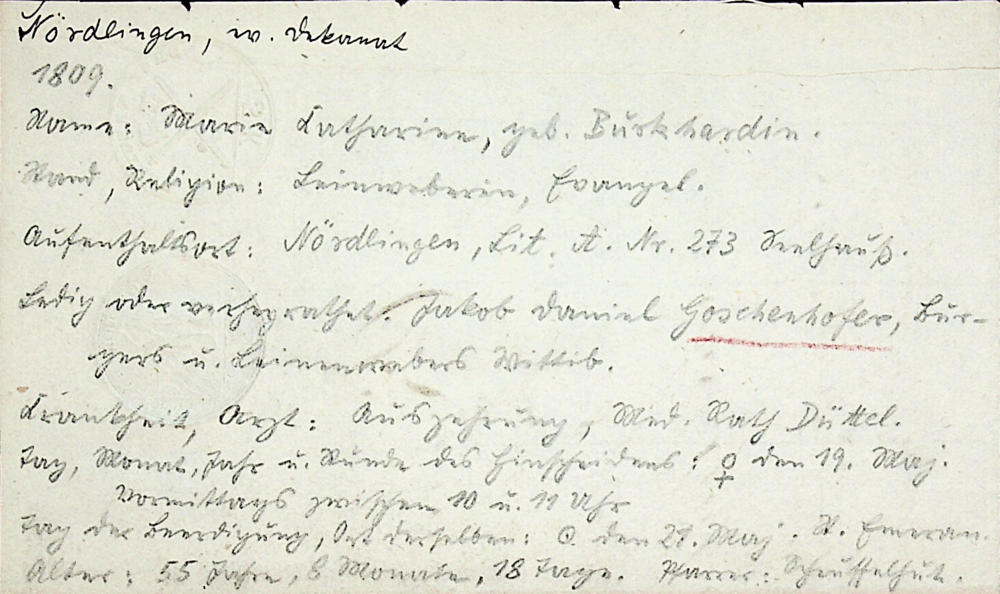 Nördlingen, ev. Dekanat
1809.
Name: Marie Katharine, geb. Burkhardin.
Stand, Religion: Leinweberin, Evangel.
Aufenthaltsort: Nördlingen, Lit. A. Nr. 273 Seelhauß.
Ledig oder verheyrathet: Jakob Daniel Goschenhofer, Bür-
gers u. Leinenwebers Wittib.
Krankheit, Arzt: Auszehrung, Med. Rath Düttel.
Tag, Monat, Jahr u. Stunde des Hinscheidens: ♀ den 19. Maj.
Vormittags zwischen 10 u. 11 Uhr
Tag der Beerdigung, Ort derselben: den 21. Maj. St. Emeran.
Alter: 55 Jahre, 8 Monate, 18 Tage. Pfarrer: Scheuffelhut.